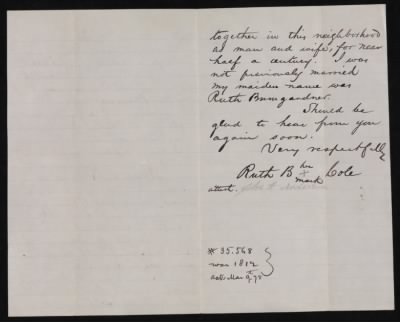 together in this neighborhood
as man and wife, for near
half a century. I was
not previously married
my maiden name was
Ruth Bumgardner.
Should be
glad to hear from you
again soon.
Very respectfully
her
Ruth B X Cole
mark
attest.
# 35.568
war 1812